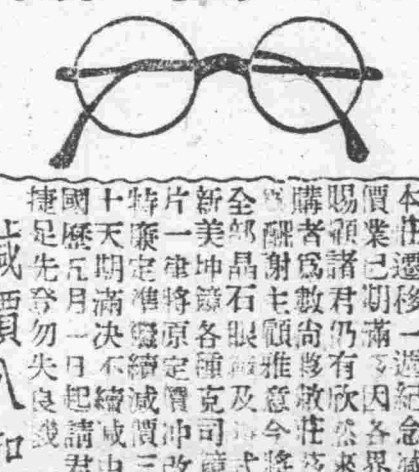 本庄遷移一週紀念
價業已期滿因各界
賜顧諸君仍有欣然來
購者為數尚夥敝莊
酬謝主顧雅意今將
全部晶石眼及式
新美坤鏡各種克司
片一律將原定價冲改
特廉定準繼續減價三
十天期滿决不續减
國歷五月一日起請君
捷足先登勿失良
減價八扣